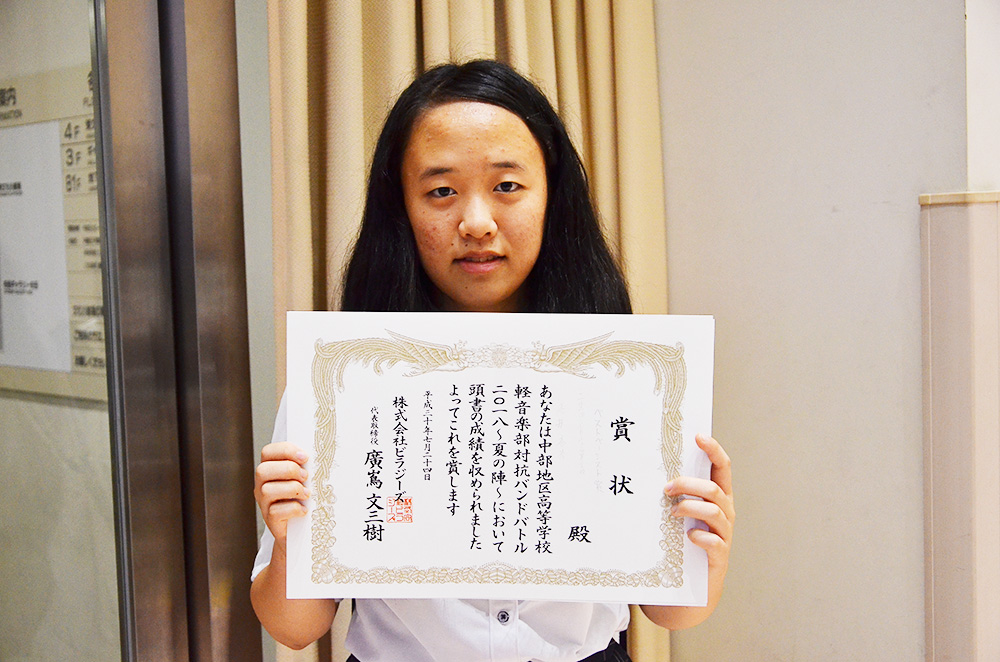 賞状
殿
あなたは中部地区高等学校
軽音楽部対抗バンドバトル
二〇一八～夏の陣～において
頭書の成績を収められました
よってこれを賞します
平成三十年七月二十四日
株式会社ビラジーズ
代表取締役 廣嶌 文三樹
案内
4F
3F
B1F